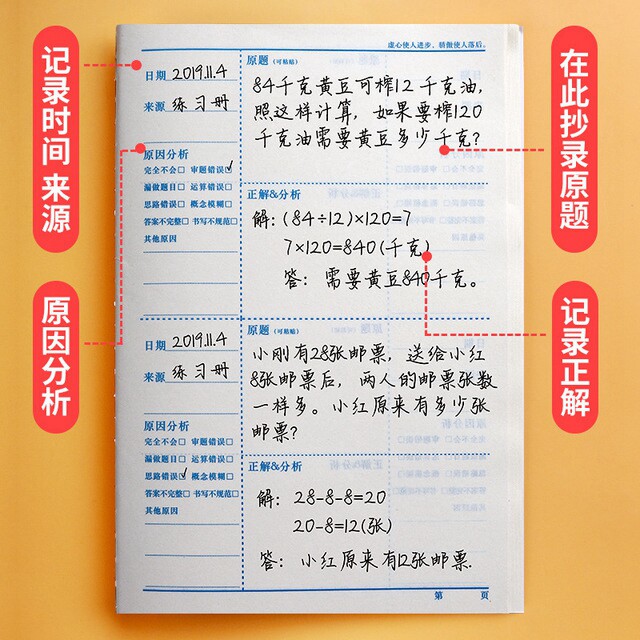 记录时间 来源
原因分析
在此抄录原题
记录正解
虚心使人进步，骄傲使人落后。
日期 2019.11.4
来源 练习册
原因分析
完全不会□ 审题错误☑
漏做题目□ 运算错误□
思路错误□ 概念模糊□
答案不完整□ 书写不规范□
其他原因
原题（可粘贴）
84千克黄豆可榨12千克油，
照这样计算，如果要榨120
千克油需要黄豆多少千克？
正解&分析
解：(84÷12)×120=7
7×120=840(千克)
答：需要黄豆840千克。
日期 2019.11.4
来源 练习册
原因分析
完全不会□ 审题错误□
漏做题目□ 运算错误□
思路错误☑ 概念模糊□
答案不完整□ 书写不规范□
其他原因
原题（可粘贴）
小刚有28张邮票，送给小红
8张邮票后，两人的邮票张数
一样多。小红原来有多少张
邮票？
正解&分析
解：28-8-8=20
20-8=12(张)
答：小红原来有12张邮票.
第 页